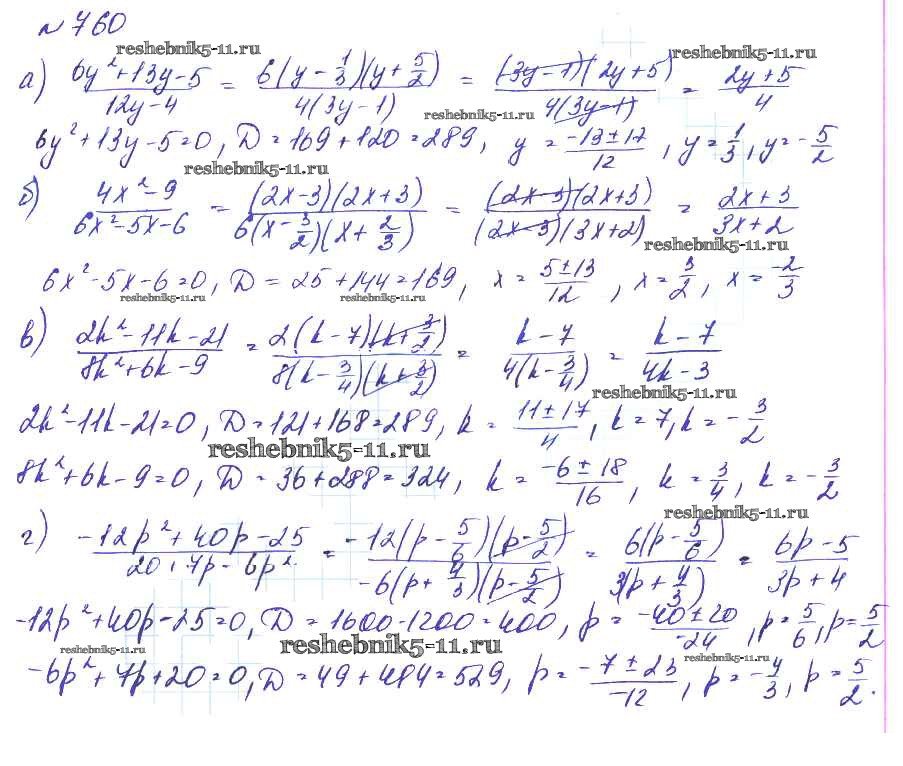 № 760
reshebnik5-11.ru reshebnik5-11.ru
а) (6y²+13y-5)/(12y-4) = 6(y-1/3)(y+5/2)/4(3y-1) = (3y-1)(2y+5)/4(3y-1) = (2y+5)/4
reshebnik5-11.ru
6y²+13y-5=0, D=169+120=289, y = (-13±17)/12, y=1/3, y=-5/2
reshebnik5-11.ru
б) (4x²-9)/(6x²-5x-6) = (2x-3)(2x+3)/6(x-3/2)(x+2/3) = (2x-3)(2x+3)/(2x-3)(3x+2) = (2x+3)/(3x+2)
reshebnik5-11.ru
6x²-5x-6=0, D=25+144=169, x = (5±13)/12, x=3/2, x=-2/3
reshebnik5-11.ru reshebnik5-11.ru
в) (2k²-11k-21)/(8k²+6k-9) = 2(k-7)(k+3/2)/8(k-3/4)(k+3/2) = (k-7)/4(k-3/4) = (k-7)/(4k-3)
reshebnik5-11.ru
2k²-11k-21=0, D=121+168=289, k = (11±17)/4, k=7, k=-3/2
reshebnik5-11.ru
8k²+6k-9=0, D=36+288=324, k = (-6±18)/16, k=3/4, k=-3/2
reshebnik5-11.ru
г) (-12p²+40p-25)/(20+7p-6p²) = -12(p-5/6)(p-5/2)/-6(p+4/3)(p-5/2) = 6(p-5/6)/3(p+4/3) = (6p-5)/(3p+4)
-12p²+40p-25=0, D=1600-1200=400, p = (-40±20)/-24, p=5/6, p=5/2
reshebnik5-11.ru reshebnik5-11.ru reshebnik5-11.ru
-6p²+7p+20=0, D=49+484=529, p = (-7±23)/-12, p=-4/3, p=5/2.